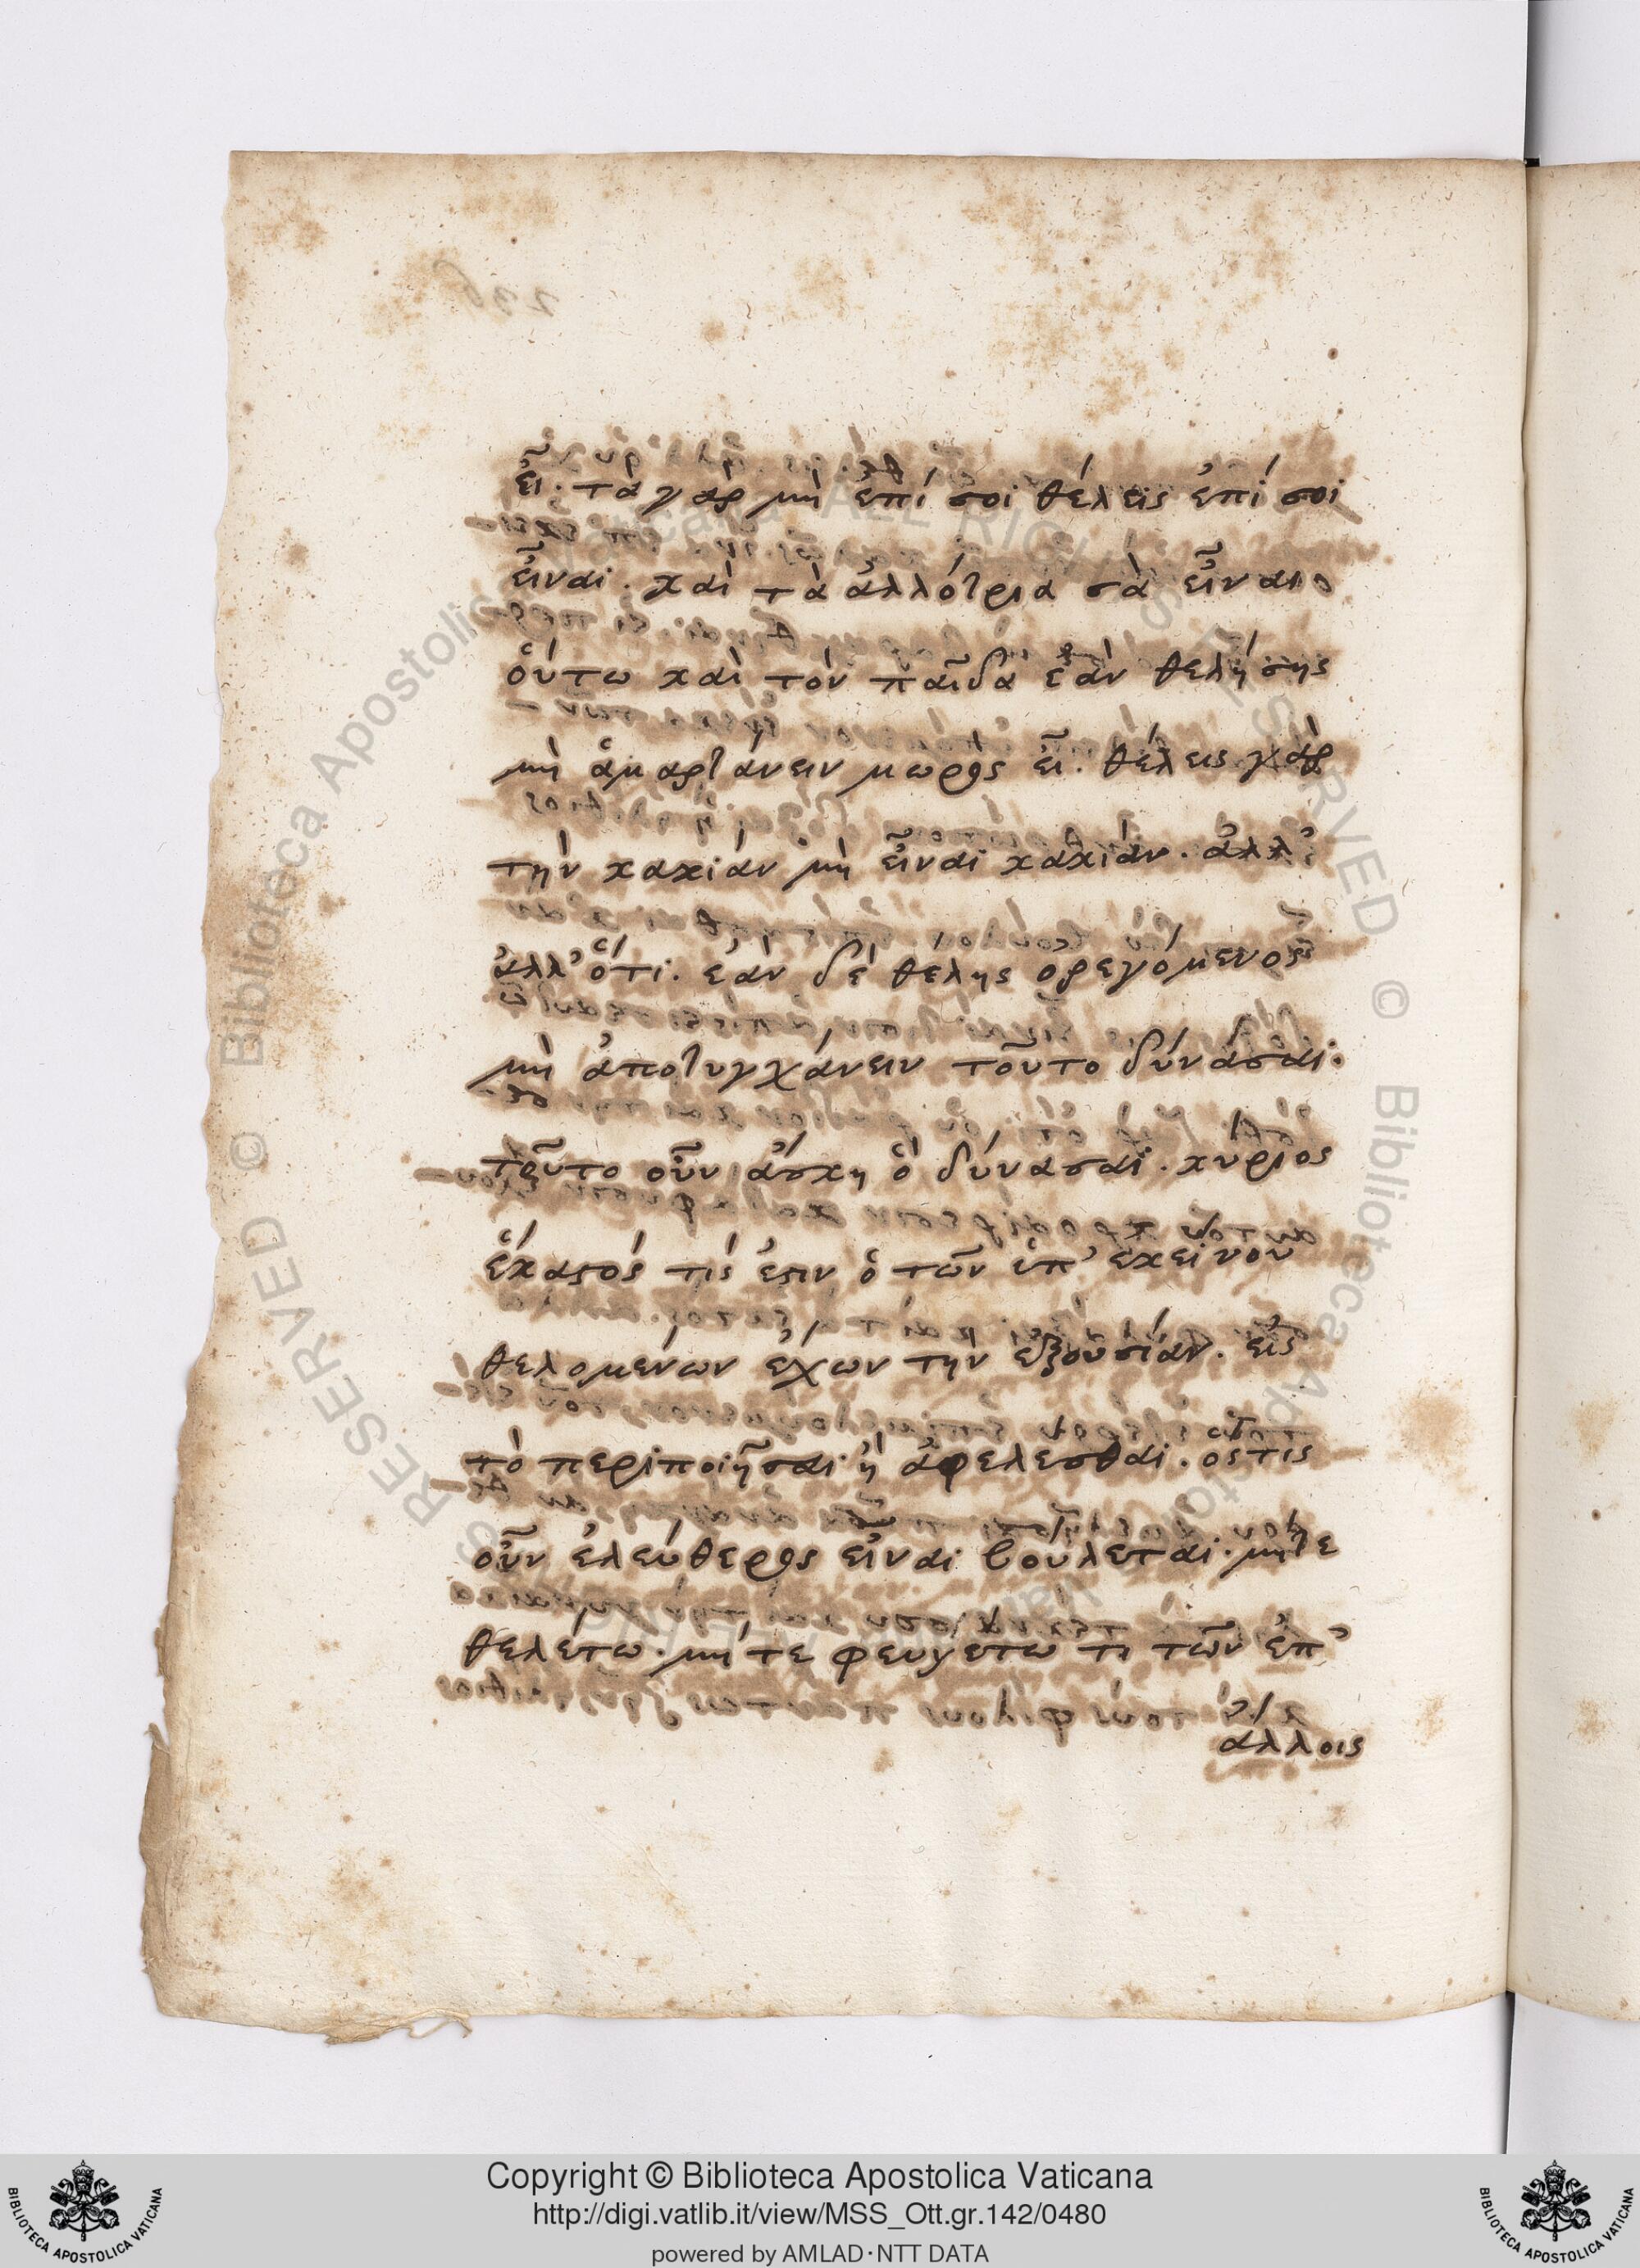 εἶ. τὰ γὰρ μὴ ἐπί σοι θέλεις ἐπί σοι
εἶναι. καὶ τὰ ἀλλότρια σὰ εἶναι.
ὅυτω καὶ τὸν παῖδα ἐὰν θελήσης
μὴ ἁμαρτάνειν μωρὸς εἶ. θέλεις γὰρ
τὴν κακίαν μὴ εἶναι κακίαν. ἀλλ'
ἀλλ' ὅτι. ἐὰν δὲ θέλης ὀρεγόμενος
μὴ ἀποτυγχάνειν τοῦτο δύνασαι.
τοῦτο οὖν ἄσκη ὃ δύνασαι. κύριος
ἕκαστός τίς ἐστιν ὁ τῶν ὑπ' ἐκείνου
θελομένων ἔχων τὴν ἐξουσίαν. εἰς
τὸ περιποιῆσαι ἢ ἀφελεσθαι. ὅστις
οὖν ἐλεύθερος εἶναι βούλεται. μήτε
θελέτω. μήτε φευγετω τι τῶν ἐπ'
ἄλλοις
236
Copyright © Biblioteca Apostolica Vaticana
http://digi.vatlib.it/view/MSS_Ott.gr.142/0480
powered by AMLAD·NTT DATA
BIBLIOTECA APOSTOLICA VATICANA
BIBLIOTECA APOSTOLICA VATICANA